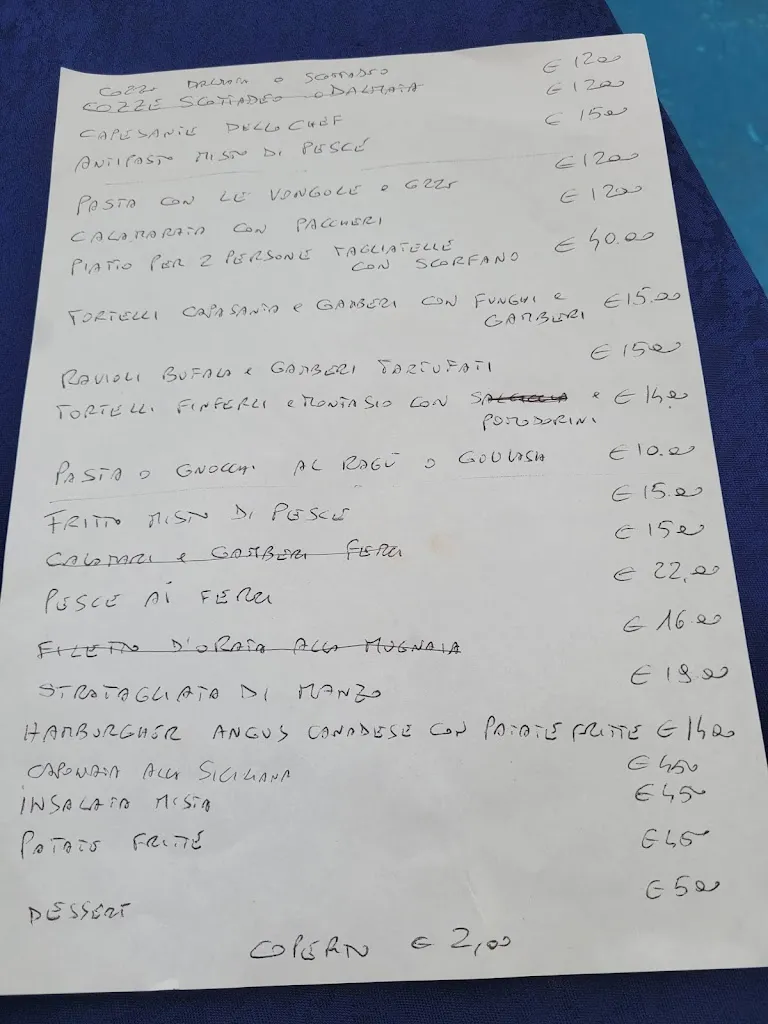 COZZE DALMATA O SCOTTADEO € 12,00
COZZE SCOTTADEO O DALMATA € 12,00
CAPESANTE DELLO CHEF € 15,00
ANTIPASTO MISTO DI PESCE
PASTA CON LE VONGOLE e COZZE € 12,00
CALAMARATA CON PACCHERI € 12,00
PIATTO PER 2 PERSONE TAGLIATELLE € 40.00
CON SCORFANO
TORTELLI CAPASANTA e GAMBERI CON FUNGHI e € 15.00
GAMBERI
RAVIOLI BUFALA e GAMBERI TARTUFATI € 15,00
TORTELLI FINFERLI e MONTASIO CON SALSICCIA e € 14,00
POMODORINI
PASTA O GNOCCHI AL RAGÙ O GOULASH € 10.00
FRITTO MISTO DI PESCE € 15.00
CALAMARI e GAMBERI FERRI € 15,00
PESCE AI FERRI € 22,00
FILETTO D'ORATA ALLA MUGNAIA € 16.00
STRATAGLIATA DI MANZO € 19.00
HAMBURGHER ANGUS CANADESE CON PATATE FRITTE € 14,00
CAPONATA ALLA SICILIANA € 4,50
INSALATA MISTA € 4,50
PATATE FRITTE € 4,50
DESSERT € 5,00
COPERTO € 2,00